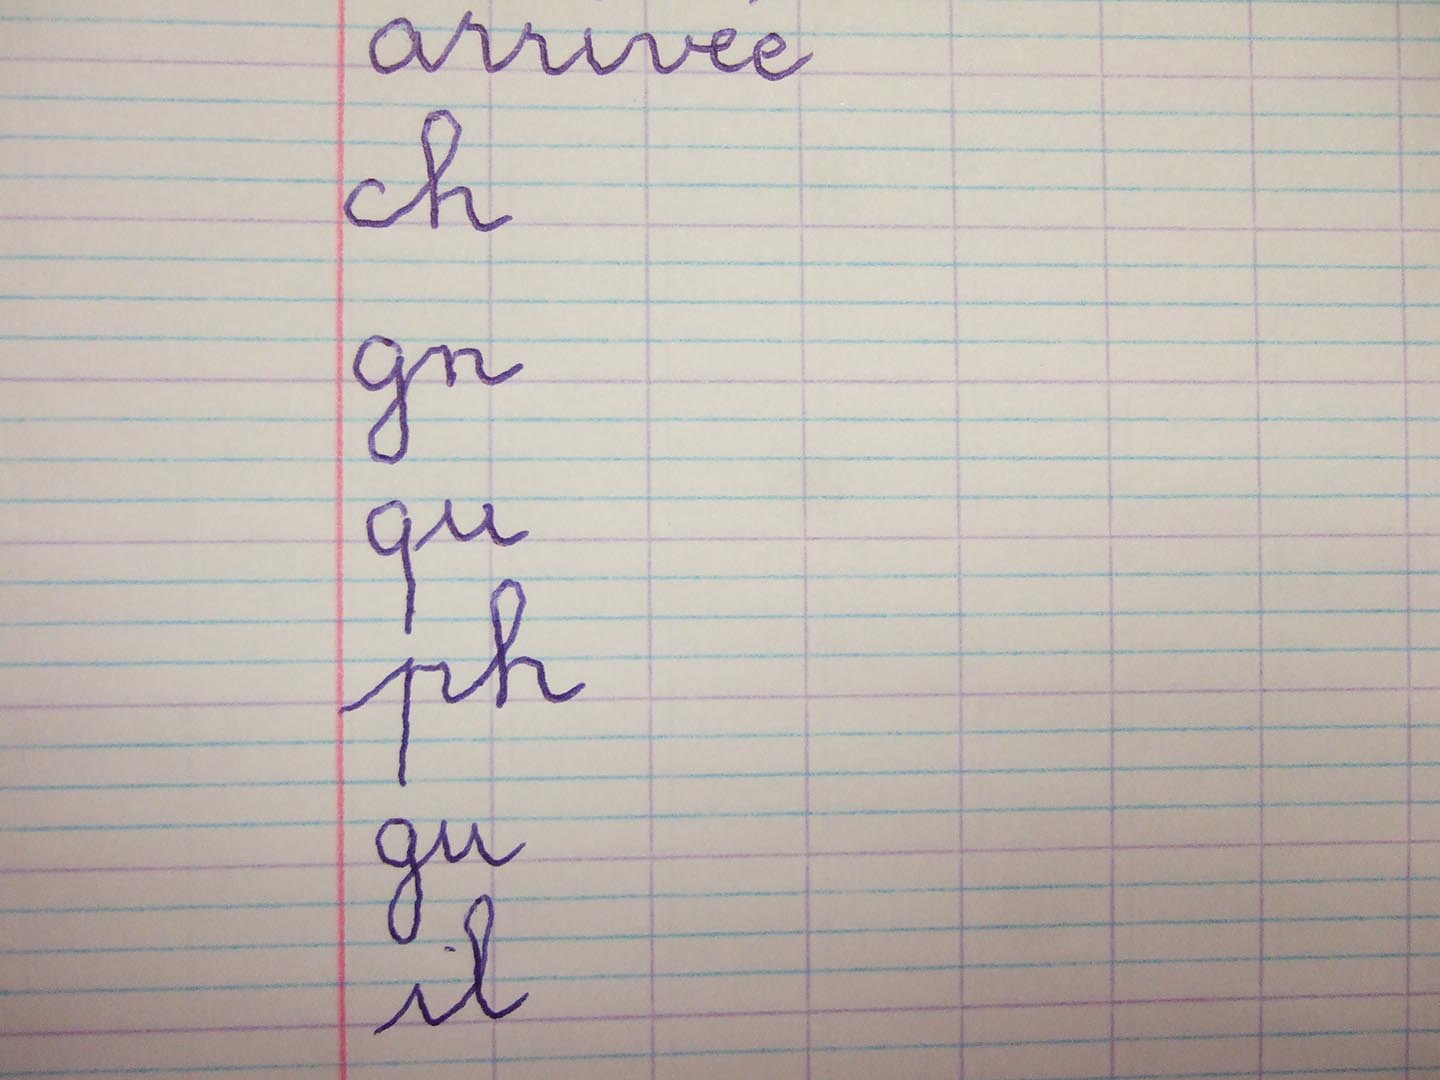 arrivée
ch
gn
qu
ph
gu
il